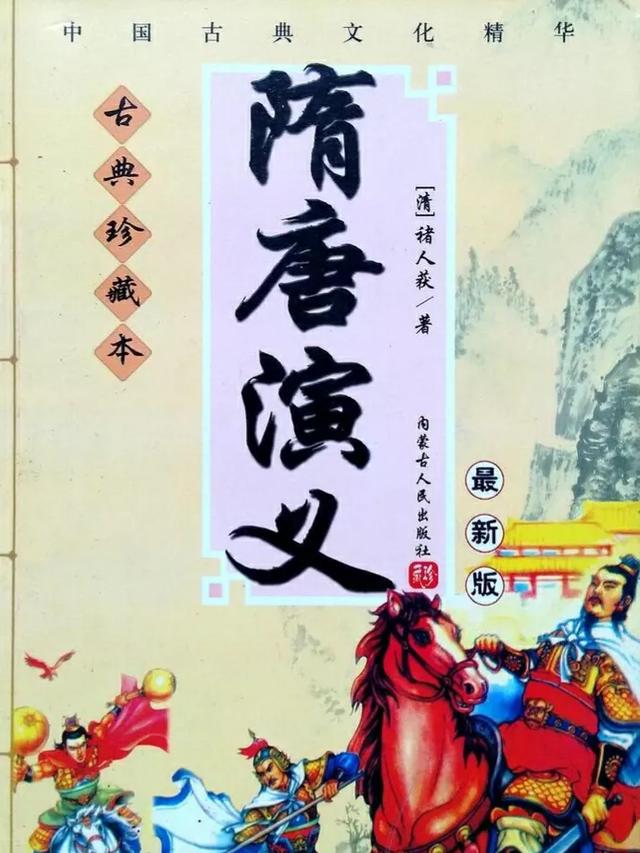 中国古典文化精华
古典珍藏本
隋唐演义
[清]褚人获／著
内蒙古人民出版社
最新版